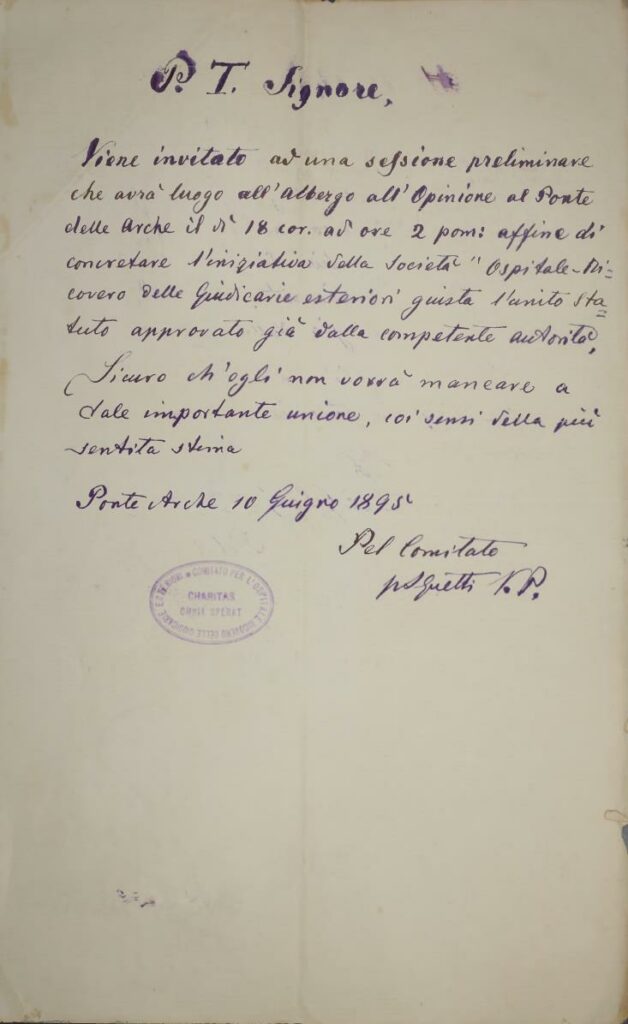 P. T. Signore,
Viene invitato ad una sessione preliminare
che avrà luogo all'Albergo all'Opinione al Ponte
delle Arche il dì 18 cor. ad ore 2 pom: affine di
concretare l'iniziativa della Società "Ospitale-Ri-
covero delle Giudicarie esteriori giusta l'unito Sta=
tuto approvato già dalla competente autorità,
Sicuro ch'ogli non vorrà mancare a
tale importante unione, coi sensi della più
sentita stima
Ponte Arche 10 Giugno 1895
Pel Comitato
Guetti V. P.
COMITATO PER L'OSPITALE RICOVERO DELLE GIUDICARIE ESTERIORI
CHARITAS
OMNIA OPERAT